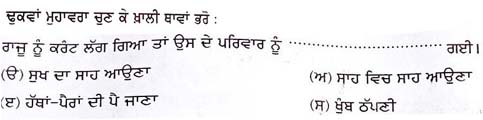 ਢੁਕਵਾਂ ਮੁਹਾਵਰਾ ਚੁਣ ਕੇ ਖ਼ਾਲੀ ਥਾਵਾਂ ਭਰੋ :
ਰਾਜੂ ਨੂੰ ਕਰੰਟ ਲੱਗ ਗਿਆ ਤਾਂ ਉਸ ਦੇ ਪਰਿਵਾਰ ਨੂੰ ........................................ ਗਈ।
(ੳ) ਸੁਖ ਦਾ ਸਾਹ ਆਉਣਾ (ਅ) ਸਾਹ ਵਿਚ ਸਾਹ ਆਉਣਾ
(ੲ) ਹੱਥਾਂ-ਪੈਰਾਂ ਦੀ ਪੈ ਜਾਣਾ (ਸ) ਖੁੰਬ ਠੱਪਣੀ